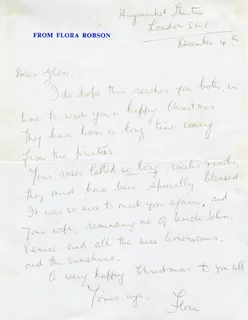 Haymarket Theatre
London SW1
FROM FLORA ROBSON
December 4th
Dear Glen,
I do hope this reaches you both in
time to wish you a happy Christmas.
They have been a long time coming
from the printers.
Your roses lasted so long, weeks & weeks,
they must have been specially blessed.
It was so nice to meet you again, and
your wife, reminding me of Uncle John,
Venice and all the nice Americans,
and the sunshine.
A very happy Christmas to you all
Yours aye,
Flora